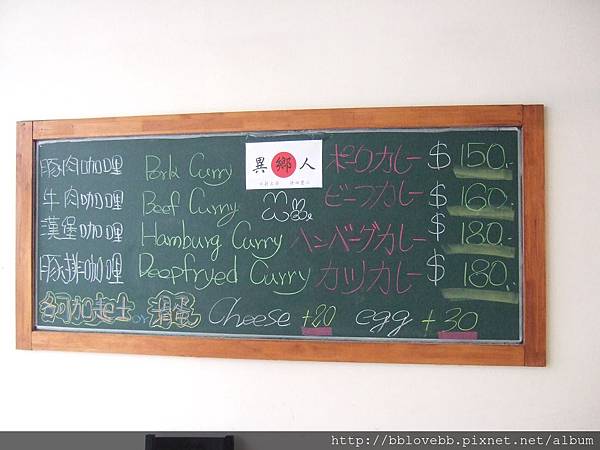 異鄉人
豚肉咖哩 Pork Curry ポークカレー $150.
牛肉咖哩 Beef Curry ビーフカレー $160.
漢堡咖哩 Hamburg Curry ハンバーグカレー $180.
豚排咖哩 Deepfryed Curry カツカレー $180.
各可加起士 or 滑蛋 Cheese +20 egg +30
http://bblovebb.pixnet.net/album